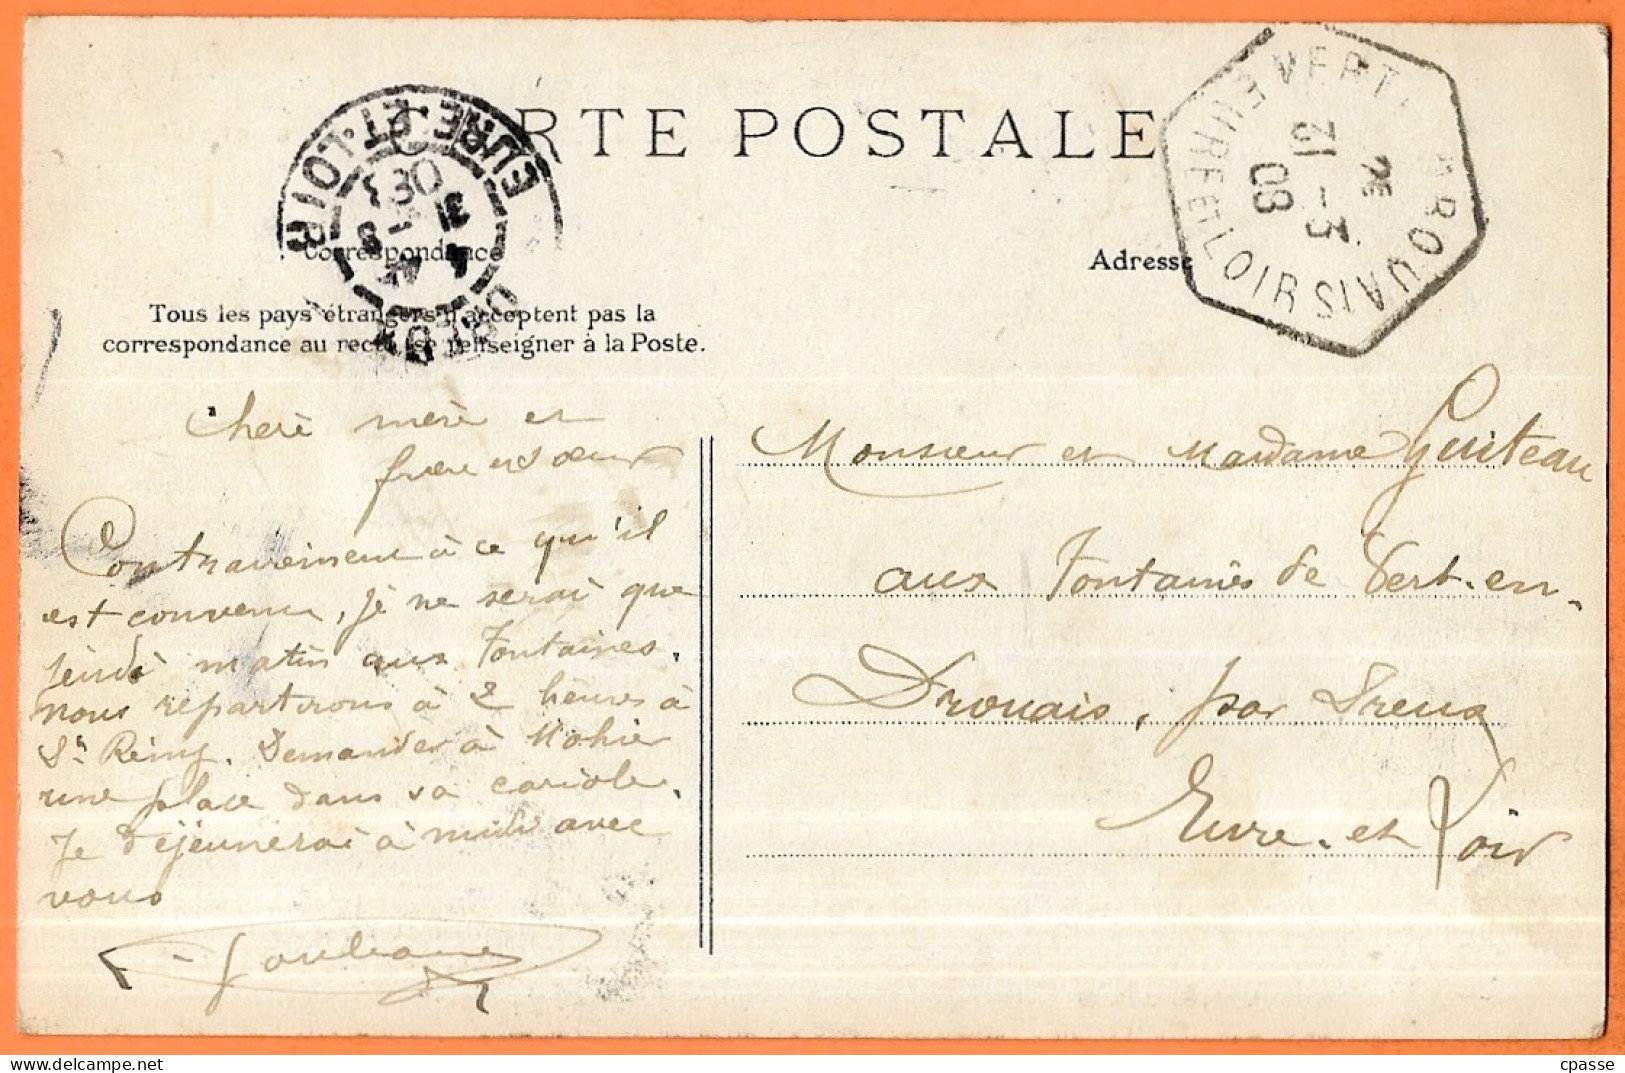 CARTE POSTALE
EURE-ET-LOIR
VERT EN DROUAIS
EURE ET LOIR
21 - 3
08
Correspondance
Adresse
Tous les pays étrangers n'acceptent pas la
correspondance au recto (se renseigner à la Poste.
Chere mère et
frère et sœur
Contrairement à ce qu'il
est convenu, je ne serai que
jeudi matin aux Fontaines.
Nous repartirons à 2 heures à
St Rémy. Demander à Mohier
une place dans sa cariole.
Je déjeunerai à midi avec
vous
Monsieur et Madame Guiteau
aux Fontaines de Vert-en-
Drouais, par Dreux
Eure-et Loir
cpasse